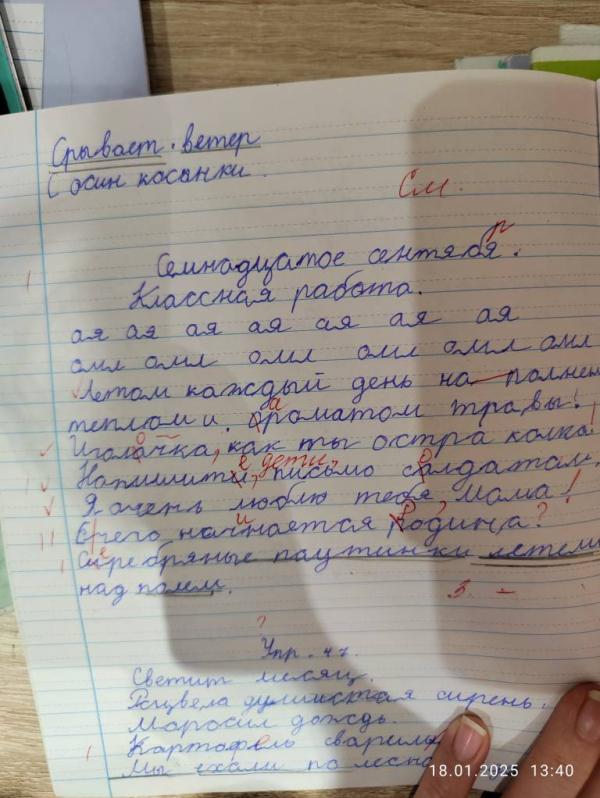 Срывает ветер
С осин косынки.
См.
Семнадцатое сентябр
Классная работа.
ая ая ая ая ая ая ая
омл омл омл омл омл омл
Летом каждый день на полнен
теплом и ароматом травы!
Иголочка, как ты остра колка!
Напишите, дети, письмо солдатам.
Я очень люблю тебя, мама!
С чего начинается Родина?
Серебряные паутинки летели
над полем.
3 -
?
Упр. 47.
Светит месяц.
Расцвела душистая сирень.
Моросил дождь.
Картофель сварили
Мы ехали по лесно
18.01.2025 13:40